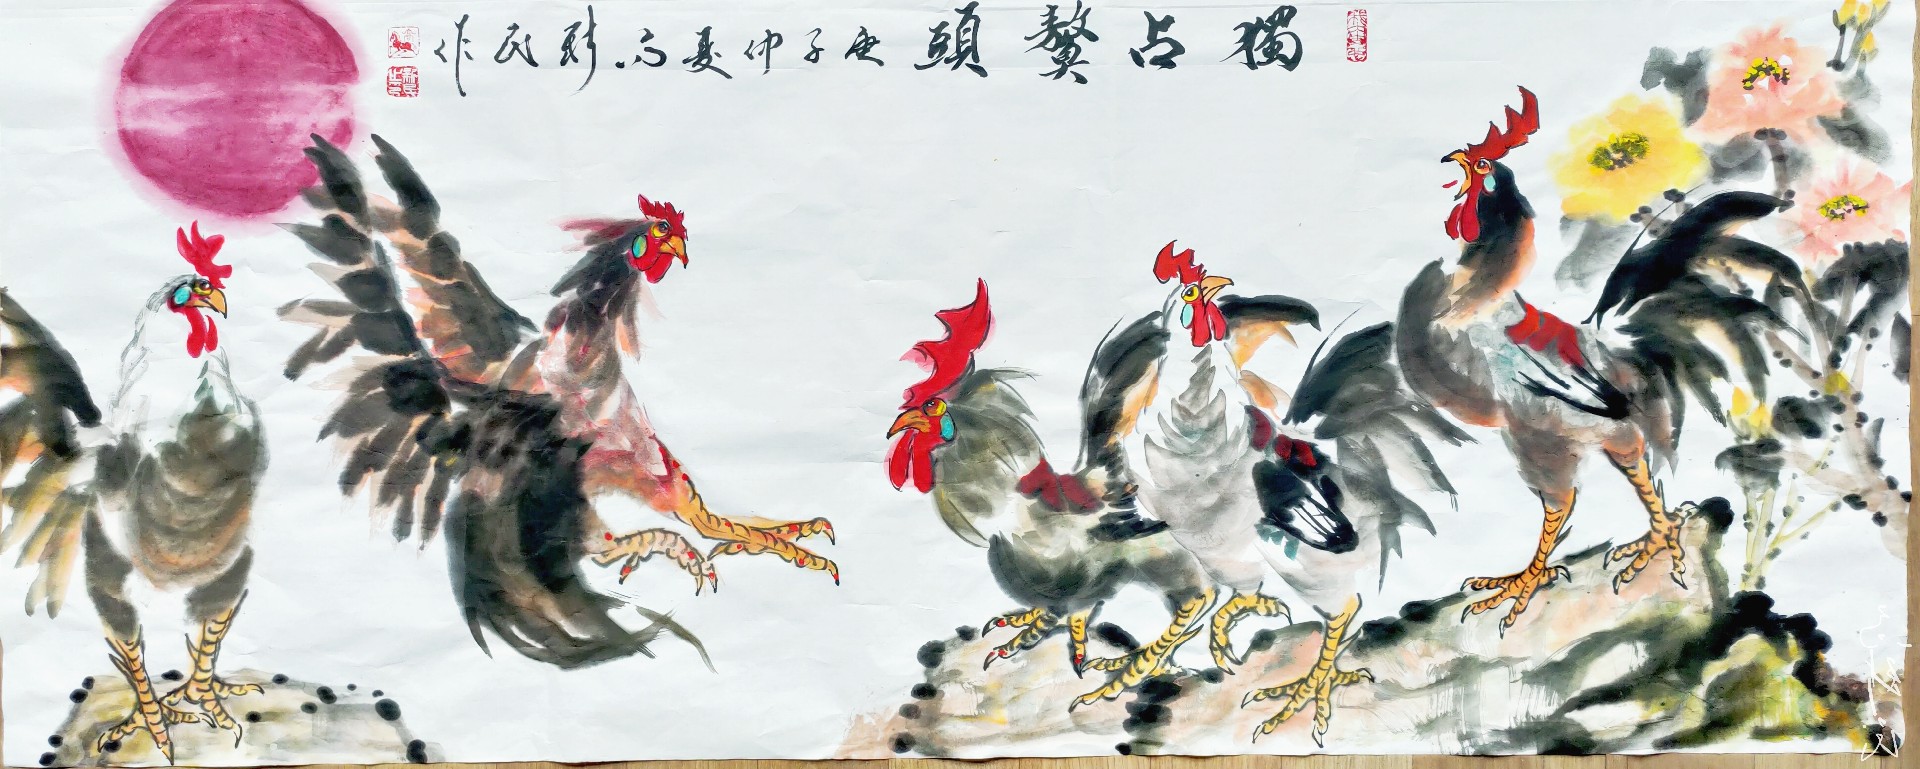 獨占鰲頭 庚子仲夏 新民作